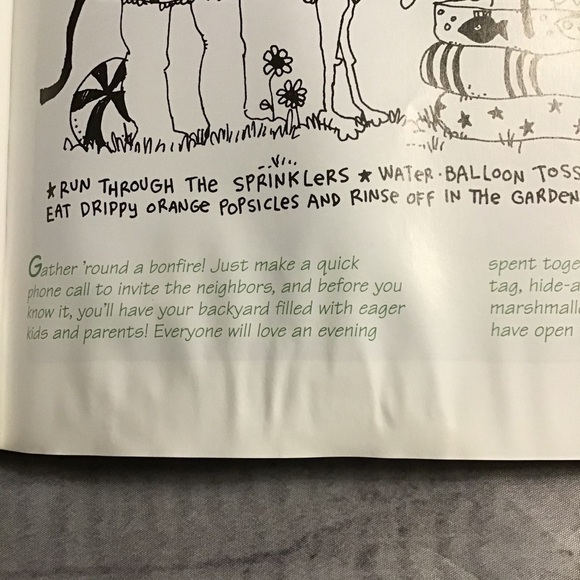 ★ RUN THROUGH THE SPRINKLERS ★ WATER·BALLOON TOSS
EAT DRIPPY ORANGE POPSICLES AND RINSE OFF IN THE GARDEN
Gather 'round a bonfire! Just make a quick
phone call to invite the neighbors, and before you
know it, you'll have your backyard filled with eager
kids and parents! Everyone will love an evening
spent toge
tag, hide-a
marshmall
have open